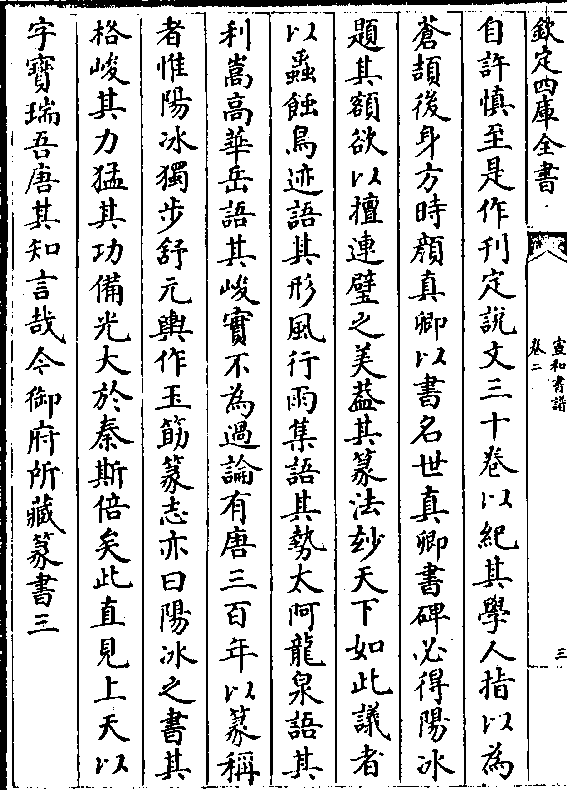 欽定四庫全書
宣和書譜
卷二
三
自許慎至是作刊定說文三十卷以紀其學人指以為
蒼頡後身方時顔真卿以書名世真卿書碑必得陽冰
題其額欲以擅連璧之美葢其篆法妙天下如此議者
以蟲蝕鳥迹語其形風行雨集語其勢太阿龍泉語其
利嵩高華岳語其峻實不為過論有唐三百年以篆稱
者惟陽冰獨步舒元輿作玉筯篆志亦曰陽冰之書其
格峻其力猛其功備光大於秦斯倍矣此直見上天以
字寶瑞吾唐其知言哉今御府所藏篆書三